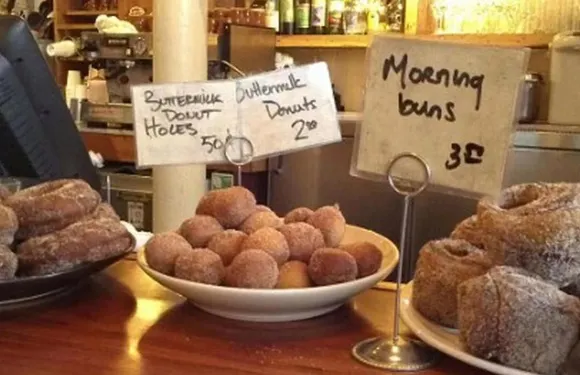 BUTTERMILK
DONUT
HOLES
50¢
Buttermilk
Donuts
2.00
Morning
buns
3.00